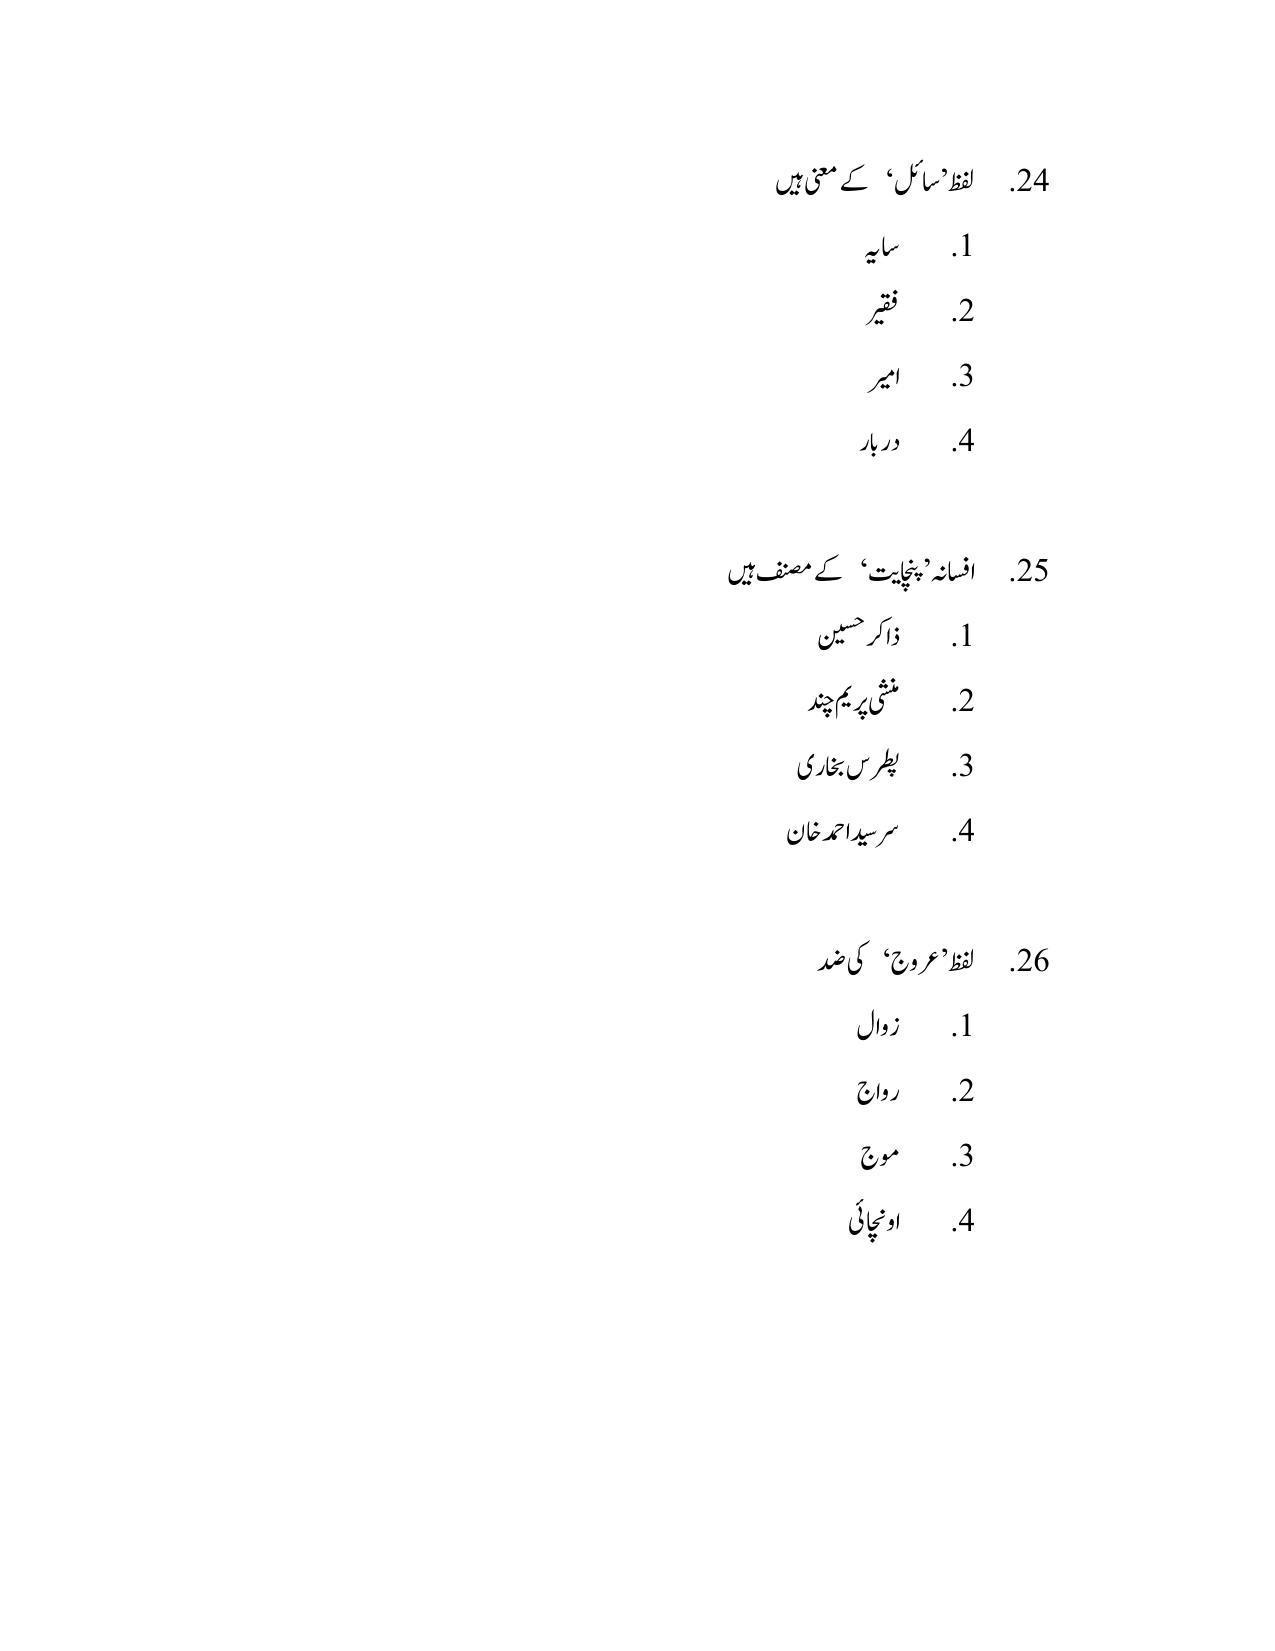 24. لفظ ’سائل‘ کے معنی ہیں
1. سایہ
2. فقیر
3. امیر
4. دربار
25. افسانہ ’پنچایت‘ کے مصنف ہیں
1. ذاکر حسین
2. منشی پریم چند
3. پطرس بخاری
4. سر سید احمد خان
26. لفظ ’عروج‘ کی ضد
1. زوال
2. رواج
3. موج
4. اونچائی